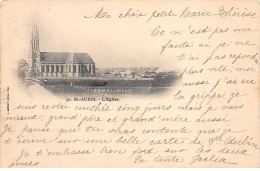 Ma chère petite Marie Thérèse
Ce n'est pas ma
faute si je ne
t'ai pas répondu
plus vite mais
j'ai eu
la grippe je
32. St-AUBIN. - L'Église.
suis restée couchée cinq jours mais je vais
mieux; grand père et grand mère aussi
Je pense que tu seras contente que je
t'envoie une belle carte de St Aubin
Je t'embrasse bien fort sur les deux
joues
La tante